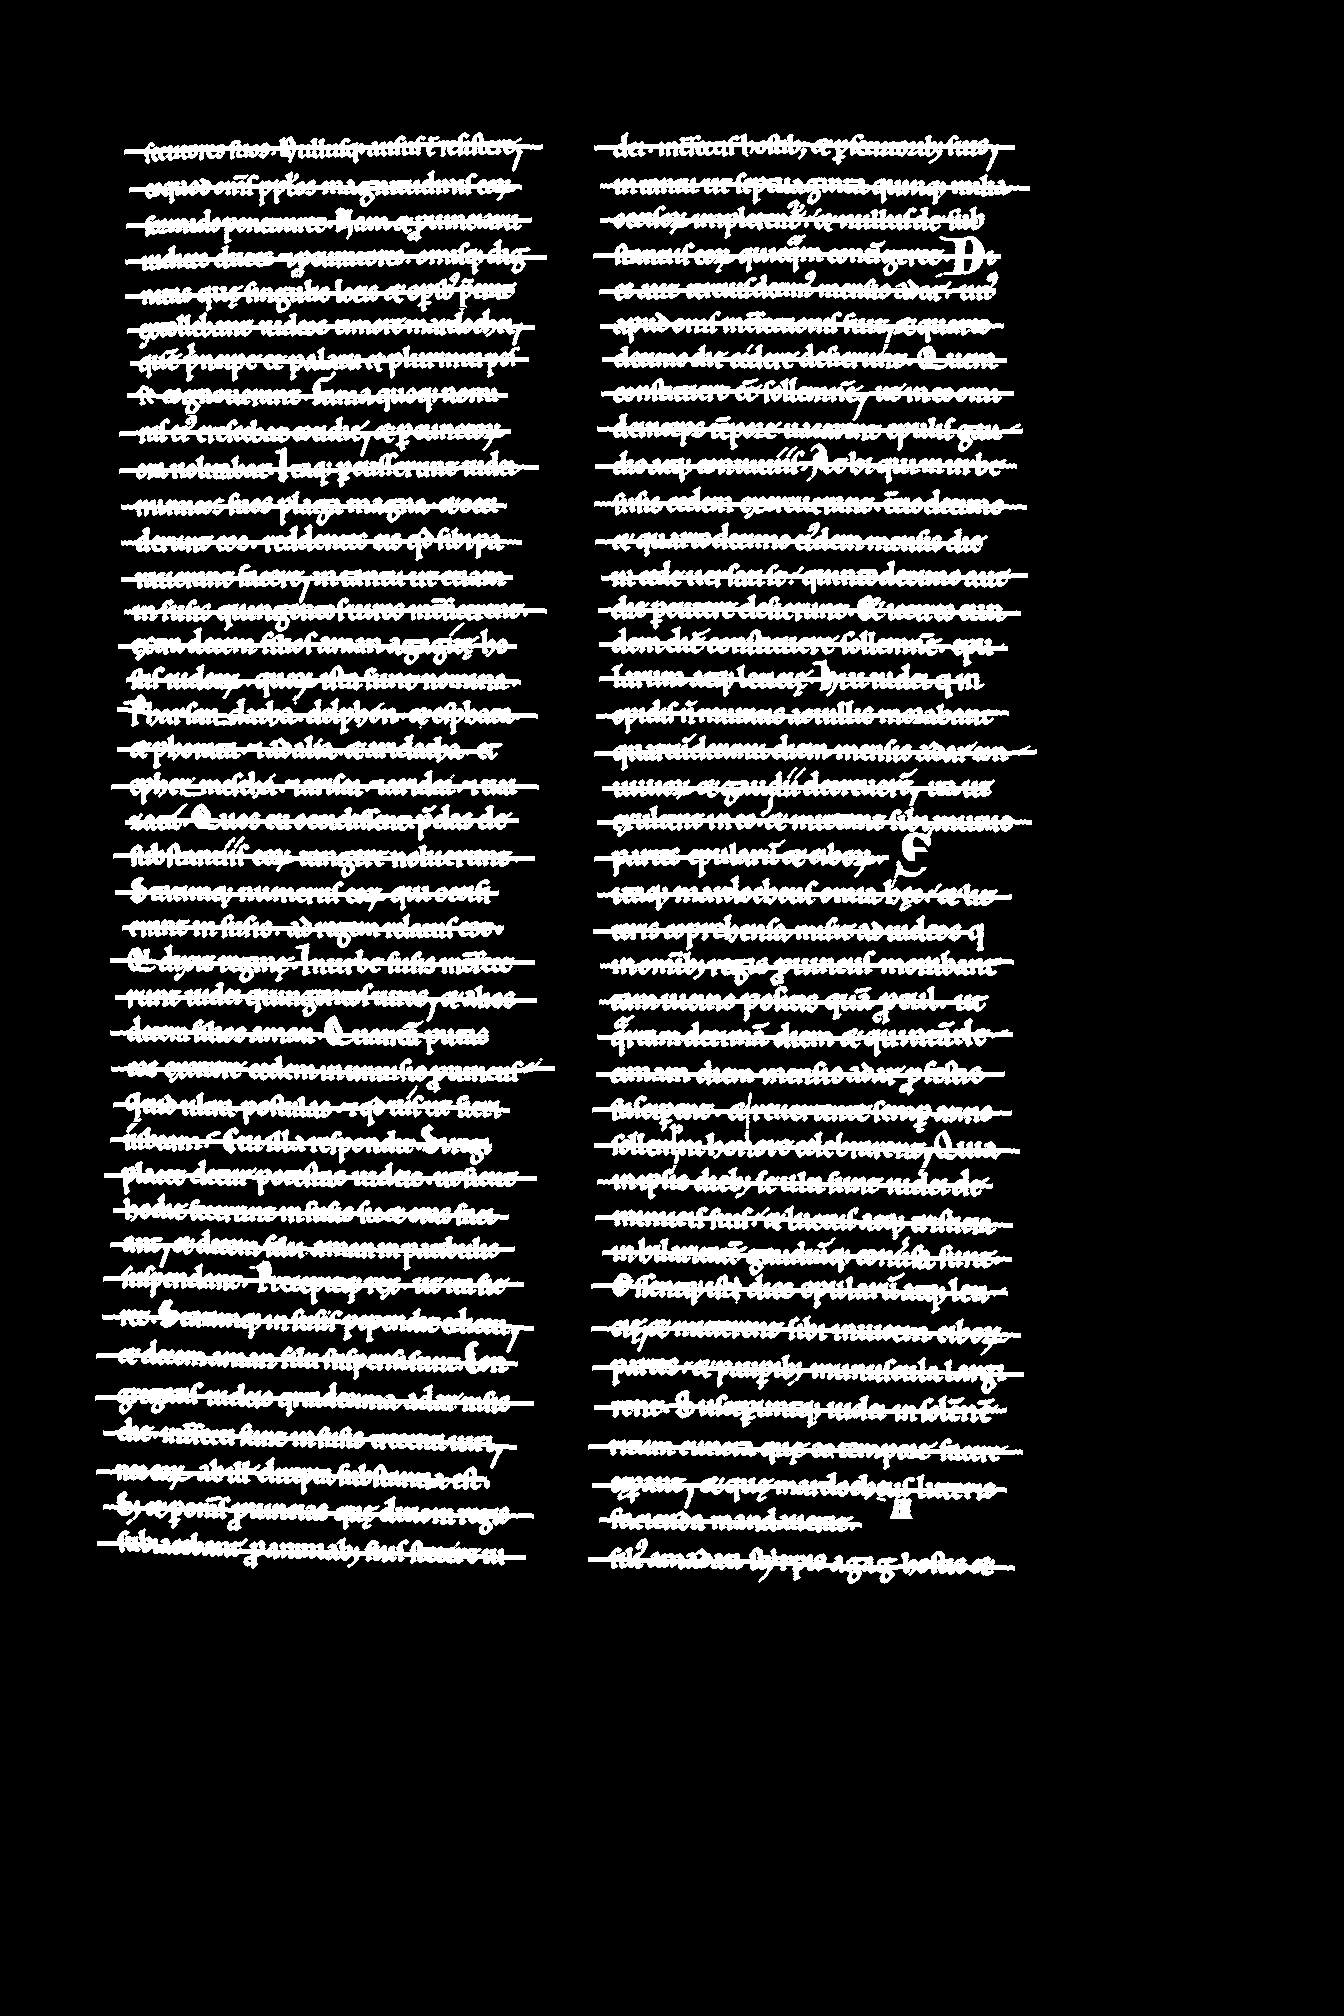 secutores suos. Nullusq; ausus ē resistere,
eo quod om̄s pp̄los magnitudinis eoꝝ
formido penetraret. Nam & ꝓuinciaru
iudices duces & ꝓcuratores. omisq; dig
nitas quę singulis locis
extollebant iudeos timore mardochei,
quē p̄ncipe ee palatii & plurimu pos
se cognouerunt. Fama quoq; nomi
nis ei' crescebat cotidie, & p cunctoꝝ
ora uolitabat. Itaq; pcusserunt iudei
inimicos suos plaga magna. & occi
derunt eos. reddentes eis qd sibi pa
rauerant facere, in tantu ut etiam
in susis quingentos uiros int̄ficerent.
extra decem filios aman agagitę ho
stis iudeoꝝ, quoꝝ ista sunt nomina.
Pharsan datha. delphon. & esphata
& phorata. & adalia. & aridatha. &
ephermestha. & arisai. & aridai. & uai
zatā. Quos cu occidissent. p̄das de
substantiis eoꝝ tangere noluerunt.
Statimq; numerus eoꝝ qui occisi
erant in susis. ad regem relatus est.
Qui dixit reginę. In urbe susis int̄fece
runt iudei quingentos uiros, & alios
decem filios aman. Quantā putas
eos exercere cedem in uniuersis ꝓuinciis
quid ultra postulas. & qd uis ut fieri
iubeam. Cui illa respondit. Si regi
placet detur potestas iudeis. ut sicut
hodie fecerunt in susis sic & cras faci
ant, & decem filii aman in patibulis
suspendant. Precepitq; rex ut ita fie
ret. Statimq; in susis pependit edictu,
& decem aman filii suspensi sunt. Con
gregatis iudeis qrtadecima adar msis
die. int̄fecti sunt in susis trecenti uiri,
nec eoꝝ ab ill' direpta substantia est.
S; & p om̄s ꝓuincias quę dicioni regis
subiacebant, ꝓ animab; suis steterunt iu
dei. int̄fectis hostib; & psecutorib; suis,
in tantu ut septuaginta quinq; milia
occisoꝝ implerent'. & nullus de sub
stantiis eoꝝ quicq̄m contīgeret. Di
es aut tercius decim' mensis adar. un'
apud om̄s int̄fectionis fuit, & quarta
decima die cedere desierunt. Quem
constituere ee sollemnē, ut in eo omi
deinceps t̄pore uacarent epulis gau
dio atq; conuiuiis. At hi qui in urbe
susis cedem exercuerant. t̄ciodecimo
& quartodecimo eiusdem mensis die
in cede uersati st. quintodecimo aut
die pcutere desierunt. Et idcirco eun
dem diē constituere sollemnē. epu
larum atq; leticię. Hii u iudei q in
opidis n̄ muratis ac uillis morabant
quartūdecimu diem mensis adar con
uiuioꝝ & gaudii decreuerū, ita ut
exultent in eo. & mittant sibi mutuo
partes epulaꝝ & ciboꝝ. S
itaq; mardocheus omia hęc. & lit
teris coprehensa misit ad iudeos q
in omib; regis ꝓuinciis morabant
tam uicino positis quā pcul. ut
q̄rtam decimā diem & quintāde
cimam diem mensis adar ꝓ festis
susciperent. & reuertente semp anno
sollemni honore celebrarent, Quia
in ipsis dieb; se ulti sunt iudei de
inimicis suis. & luctus atq; tristicia
in hilaritatē gaudiūq; conūsa sunt.
Essentq; isti dies epulaꝝ atq; leti
cię, & mitterent sibi inuicem ciboꝝ
partes. & paupib; munuscula largi
rent. Susceperuntq; iudei in sollēnē
ritum cuncta quę eo tempore facere
ceperant, & quę mardocheus litteris
facienda mandauerat. A
fili' amadati stirpis agag hostis &